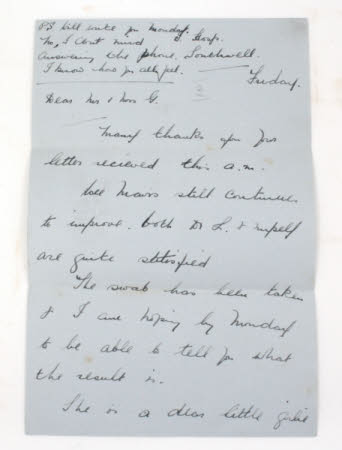 P.S. Will write you Monday.
No, I dont mind
Answering the phone. Southwell.
I know how you all feel.
Friday.
Dear Mr & Mrs G.
Many thanks for your
letter recieved this a.m.
Well Mavis still continues
to improve. both Dr L. & myself
are quite statisfied
The swab has been taken
& I am hoping by Monday
to be able to tell you what
the result is.
She is a dear little girlie